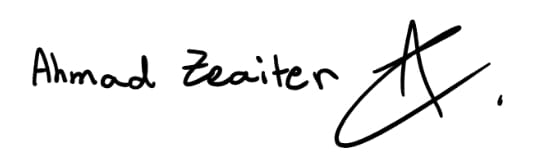 Ahmad Zeaiter